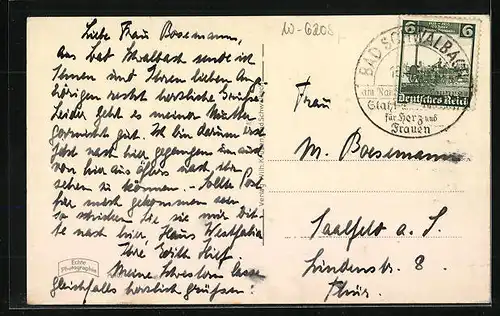 Liebe Frau Bosemann,
Aus Bad Schwalbach sende ich
Ihnen und Ihren lieben Ange-
hörigen recht herzliche Grüße.
Leider geht es meiner Mutter
garnicht gut. Ich bin darum erst
jetzt nach hier gegangen um auch
von hier aus öfters nach ihr
sehen zu können. - Sollte Post
hier nach gekommen oder
so schicken Sie sie mir bit-
te nach hier, Haus Westfalia
Ihre
Meine Schwestern lassen
gleichfalls herzlich grüßen!
Echte
Photographie
W-6208
BAD SCHWALBACH
Stahl-
für Herz und
Frauen
6
Deutsches Reich
Frau
M. Boesemann
Saalfeld a. S.
Lindenstr. 8
Thür.